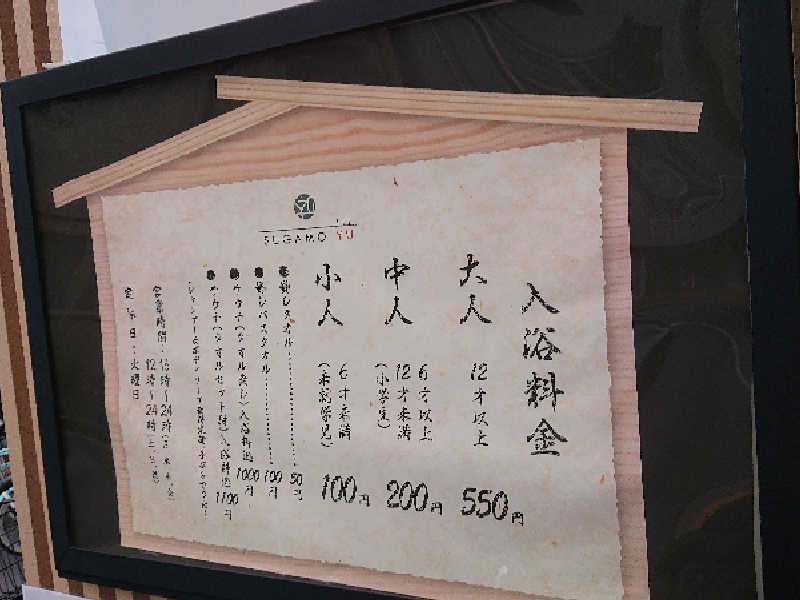 入浴料金
大人 12才以上 550円
中人 6才以上
12才未満
(小学生) 200円
小人 6才未満
(未就学児) 100円
貸しタオル 50円
貸しバスタオル 100円
サウナ(タオル無し)入浴料込 1000円
サウナ(タオルセット付)入浴料込 1100円
営業時間:
12時~24時
定休日:火曜日
SUGAMO YU